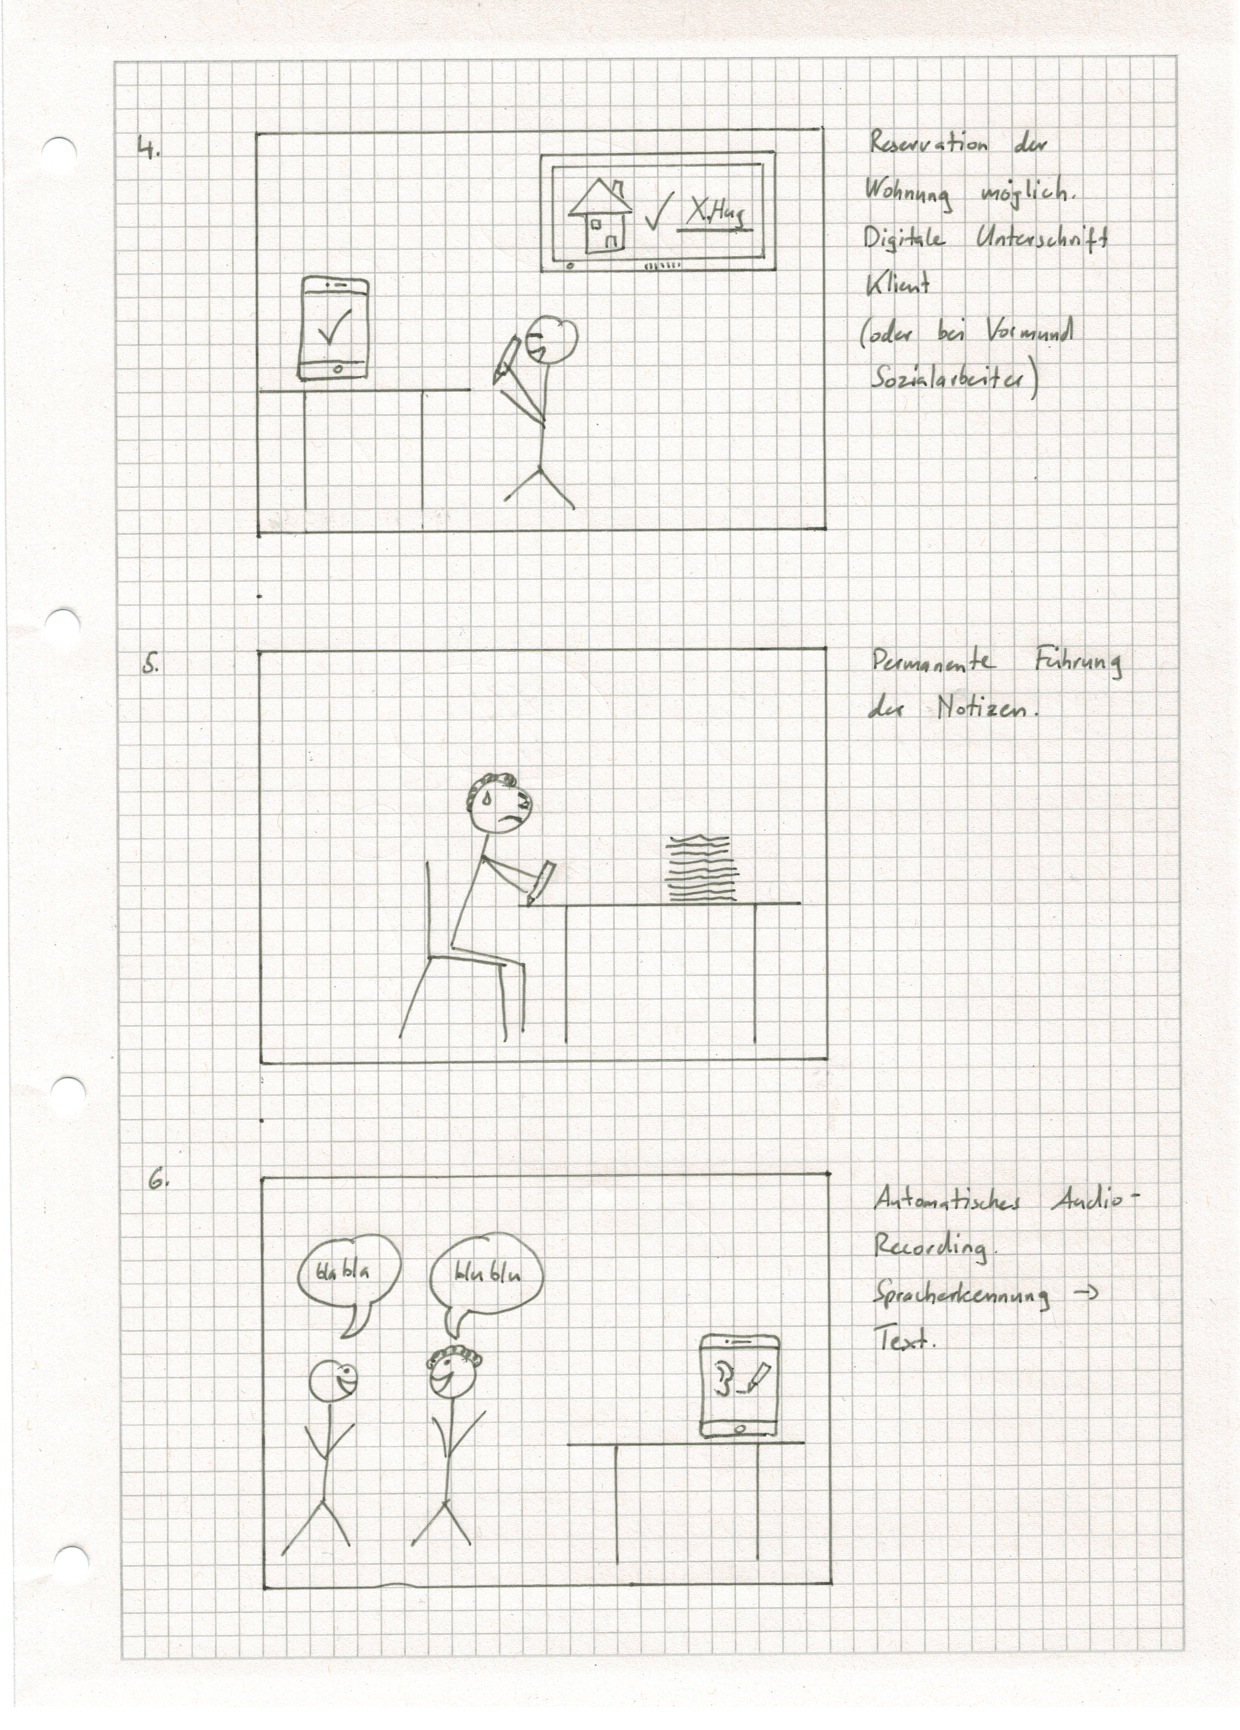 4.
X.Hug
Reservation der
Wohnung möglich.
Digitale Unterschrift
Klient
(oder bei Vormund
Sozialarbeiter)
5.
Permanente Führung
der Notizen.
6.
bla bla
blu blu
Automatisches Audio-
Recording.
Spracherkennung →
Text.